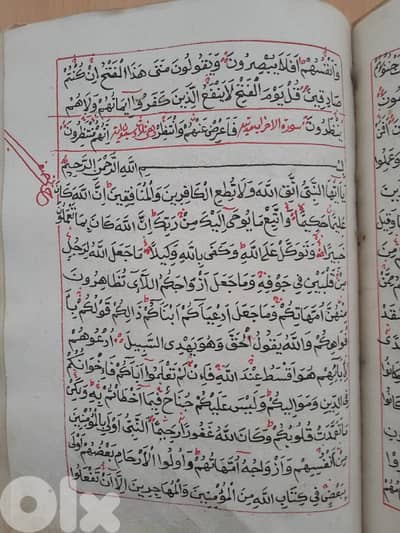 وَأَنْفُسُهُمْ أَفَلَا يُبْصِرُونَ وَيَقُولُونَ مَتَى هَذَا الْفَتْحُ إِنْ كُنْتُمْ
صَادِقِينَ قُلْ يَوْمَ الْفَتْحِ لَا يَنْفَعُ الَّذِينَ كَفَرُوا إِيمَانُهُمْ وَلَا هُمْ
يُنْظَرُونَ فَأَعْرِضْ عَنْهُمْ وَانْتَظِرْ إِنَّهُمْ مُنْتَظِرُونَ
سورة الاحزاب
بِسْمِ اللَّهِ الرَّحْمَنِ الرَّحِيمِ
يَا أَيُّهَا النَّبِيُّ اتَّقِ اللَّهَ وَلَا تُطِعِ الْكَافِرِينَ وَالْمُنَافِقِينَ إِنَّ اللَّهَ كَانَ
عَلِيمًا حَكِيمًا وَاتَّبِعْ مَا يُوحَى إِلَيْكَ مِنْ رَبِّكَ إِنَّ اللَّهَ كَانَ بِمَا تَعْمَلُونَ
خَبِيرًا وَتَوَكَّلْ عَلَى اللَّهِ وَكَفَى بِاللَّهِ وَكِيلًا مَا جَعَلَ اللَّهُ لِرَجُلٍ
مِنْ قَلْبَيْنِ فِي جَوْفِهِ وَمَا جَعَلَ أَزْوَاجَكُمُ اللَّائِي تُظَاهِرُونَ
مِنْهُنَّ أُمَّهَاتِكُمْ وَمَا جَعَلَ أَدْعِيَاءَكُمْ أَبْنَاءَكُمْ ذَالِكُمْ قَوْلُكُمْ بِأَ
فْوَاهِكُمْ وَاللَّهُ يَقُولُ الْحَقَّ وَهُوَ يَهْدِي السَّبِيلَ ادْعُوهُمْ
لِآبَائِهِمْ هُوَ أَقْسَطُ عِنْدَ اللَّهِ فَإِنْ لَمْ تَعْلَمُوا آبَاءَكُمْ فَإِخْوَانُكُمْ
فِي الدِّينِ وَمَوَالِيكُمْ وَلَيْسَ عَلَيْكُمْ جُنَاحٌ فِيمَا أَخْطَأْتُمْ بِهِ وَلَكِنْ
مَا تَعَمَّدَتْ قُلُوبُكُمْ وَكَانَ اللَّهُ غَفُورًا رَحِيمًا النَّبِيُّ أَوْلَى بِالْمُؤْمِنِينَ
مِنْ أَنْفُسِهِمْ وَأَزْوَاجُهُ أُمَّهَاتُهُمْ وَأُولُوا الْأَرْحَامِ بَعْضُهُمْ أَوْلَى
بِبَعْضٍ فِي كِتَابِ اللَّهِ مِنَ الْمُؤْمِنِينَ وَالْمُهَاجِرِينَ إِلَّا أَنْ تَفْعَلُوا
olx